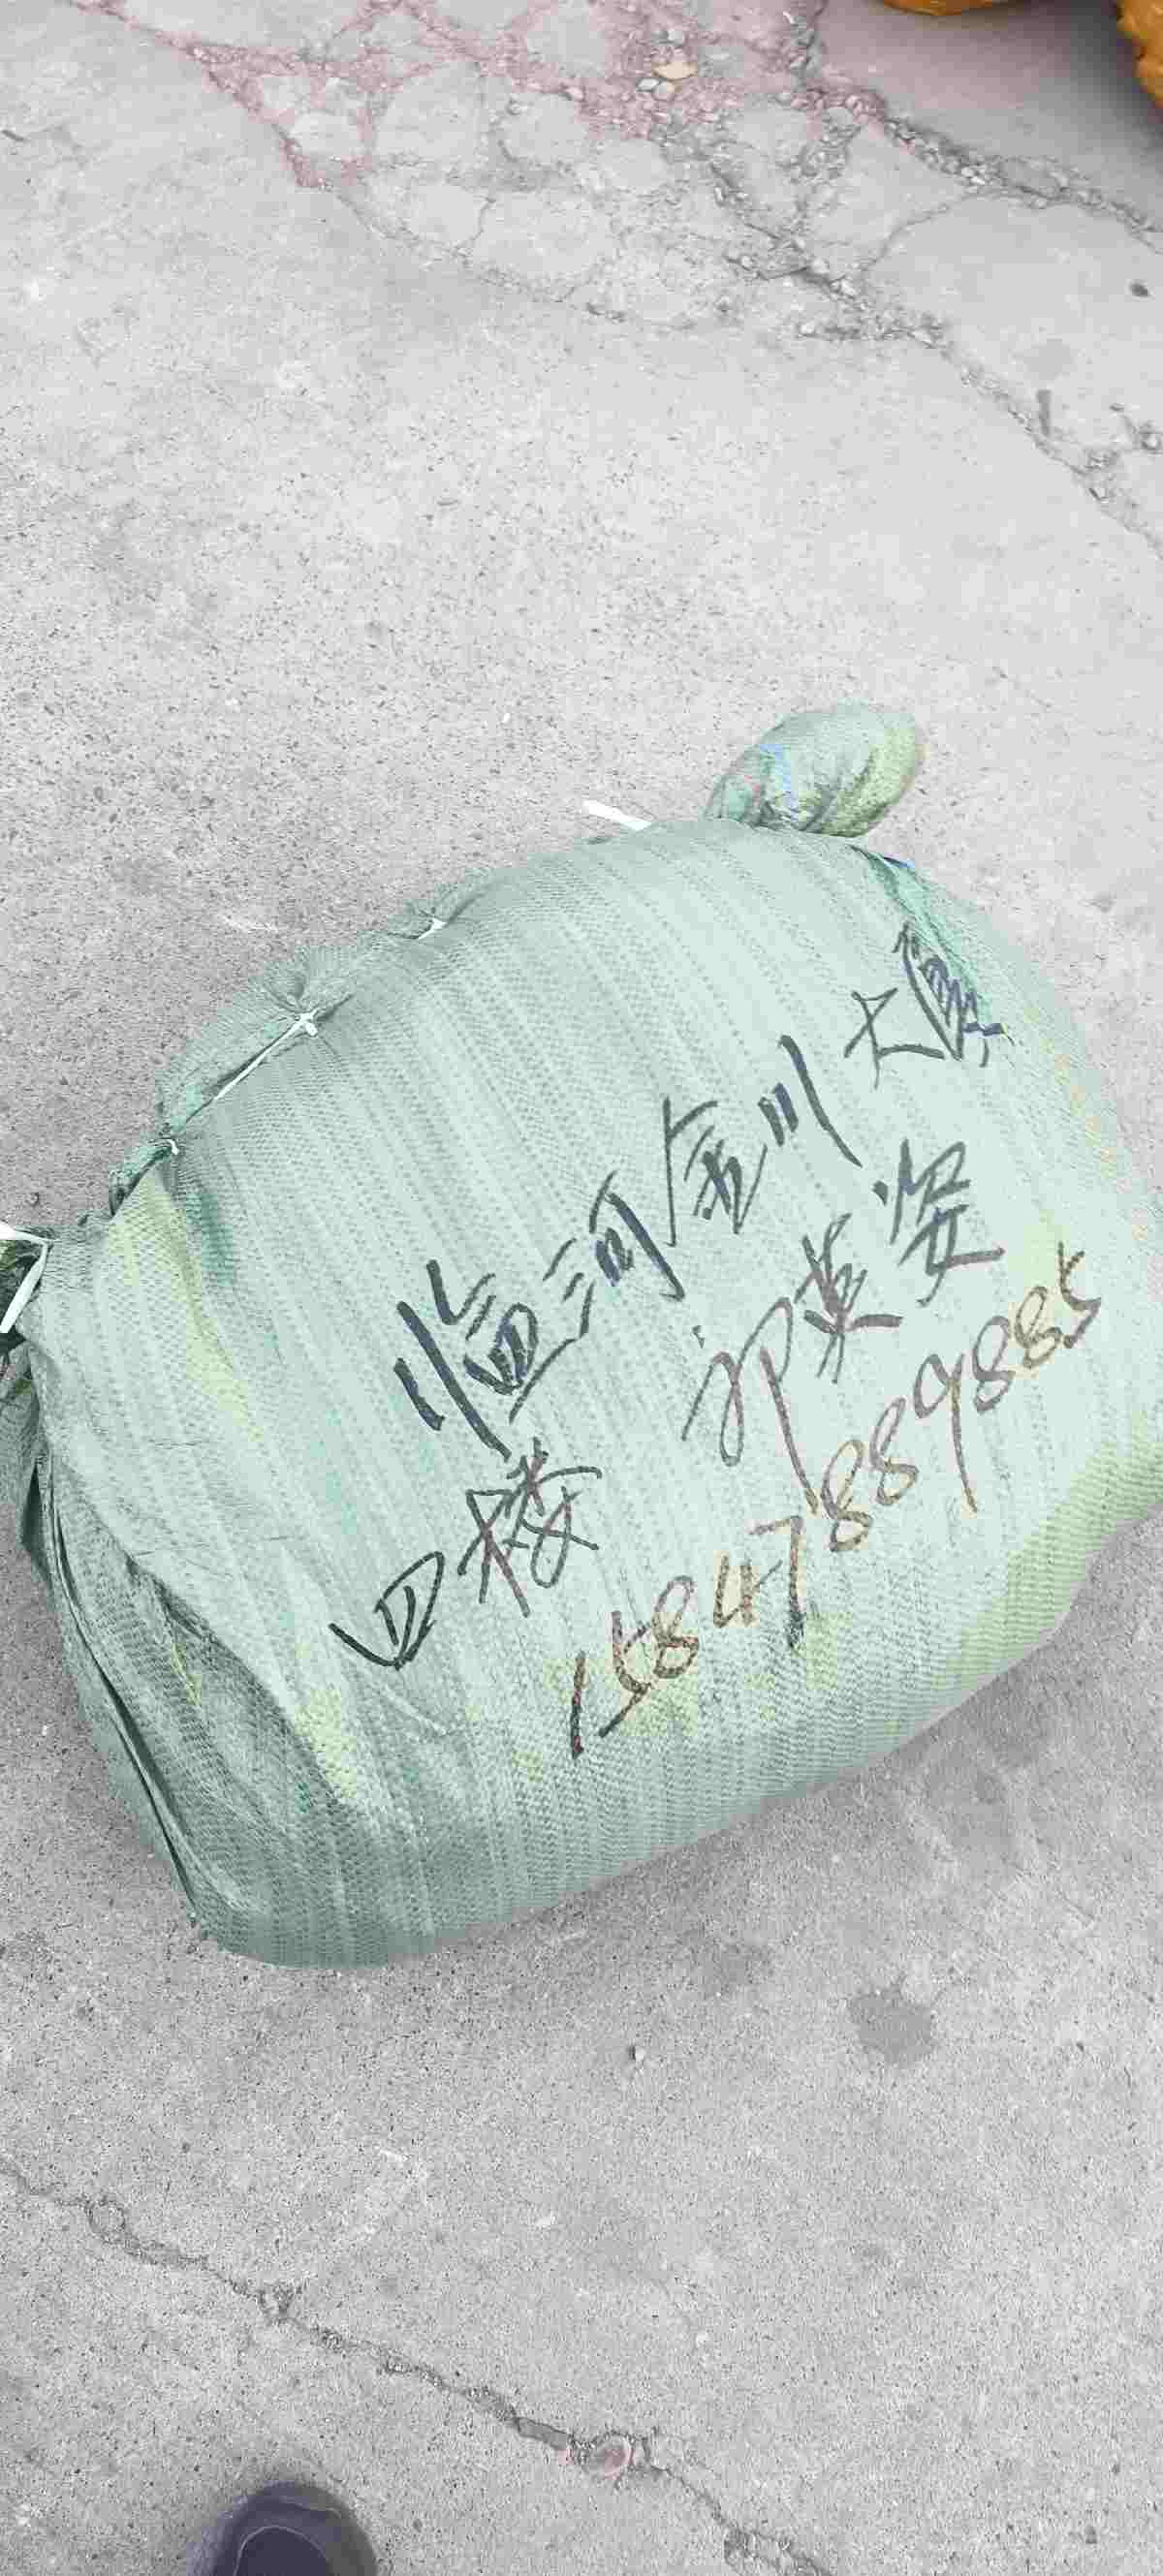 临河金川大厦
四楼 邓英
15847889885